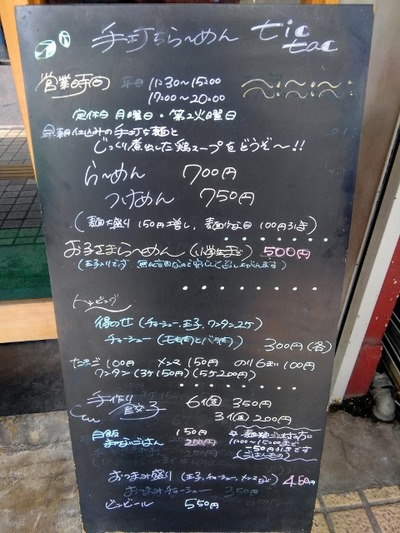 手打ちら〜めん tic tac
営業時間 平日 11:30〜15:00
17:00〜20:00
定休日 月曜日・第2火曜日
早朝仕込みの手打ち麺と
じっくり煮出した鶏スープをどうぞ〜!!
ら〜めん 700円
つけめん 750円
(麺大盛り 150円増し, 麺 100円引き)
お子さまら〜めん (小学生まで) 500円
トッピング
得のせ (チャーシュー, 玉子, ワンタン2ケ)
チャーシュー 300円(各)
たまご 100円 メンマ 150円 のり6まい 100円
ワンタン (3ケ150円) (5ケ200円)
手作り餃子 6個 350円
3個 200円
白飯 150円
まかないごはん 200円
11:00〜15:00まで
-50円引きです
おつまみ盛り (玉子, チャーシュー, メンマなど) 450円
おつまみチャーシュー 350円
ビンビール 550円